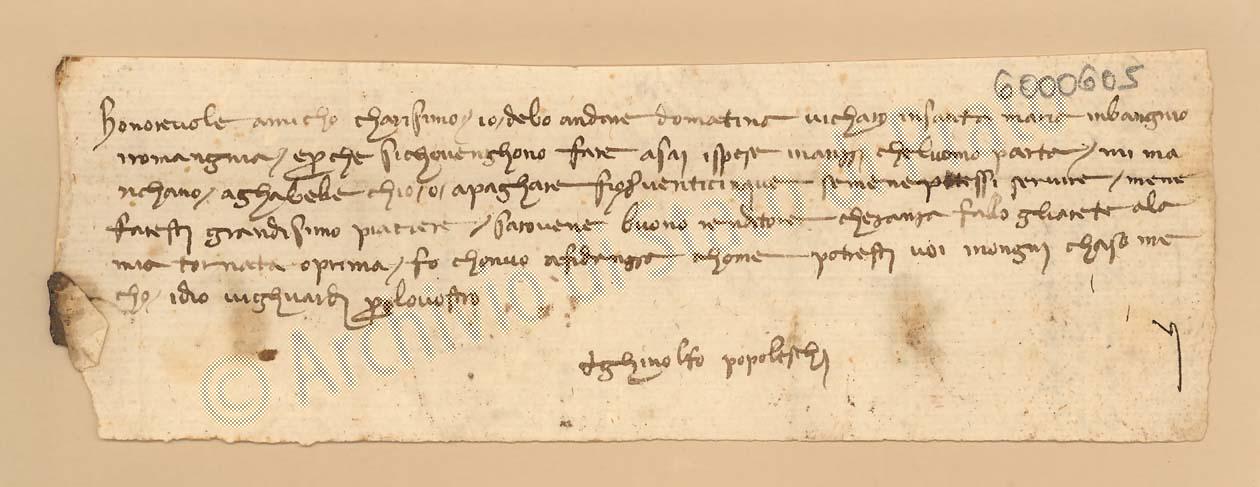 6000605
honorevole amicho charisimo / io / debo andare domatina vichario insanta maria inbangnio
iromangnia / e perche sichovenghono fare asai ispese inanzi cheluomo parta / mi ma
nchano / a ghabelle chio / o / apaghare fior venticinque semene potessi servire / mene
faresti grandisimo piaciere / sarovene buono renditore fallo gliarete ala
mia tornata oprima / fo chonvo asidanza chome potresti voi inongni chaso me
cho / idio vighuardi per lovostro
Aghinolfo popoleschi
© Archivio di Stato di Prato